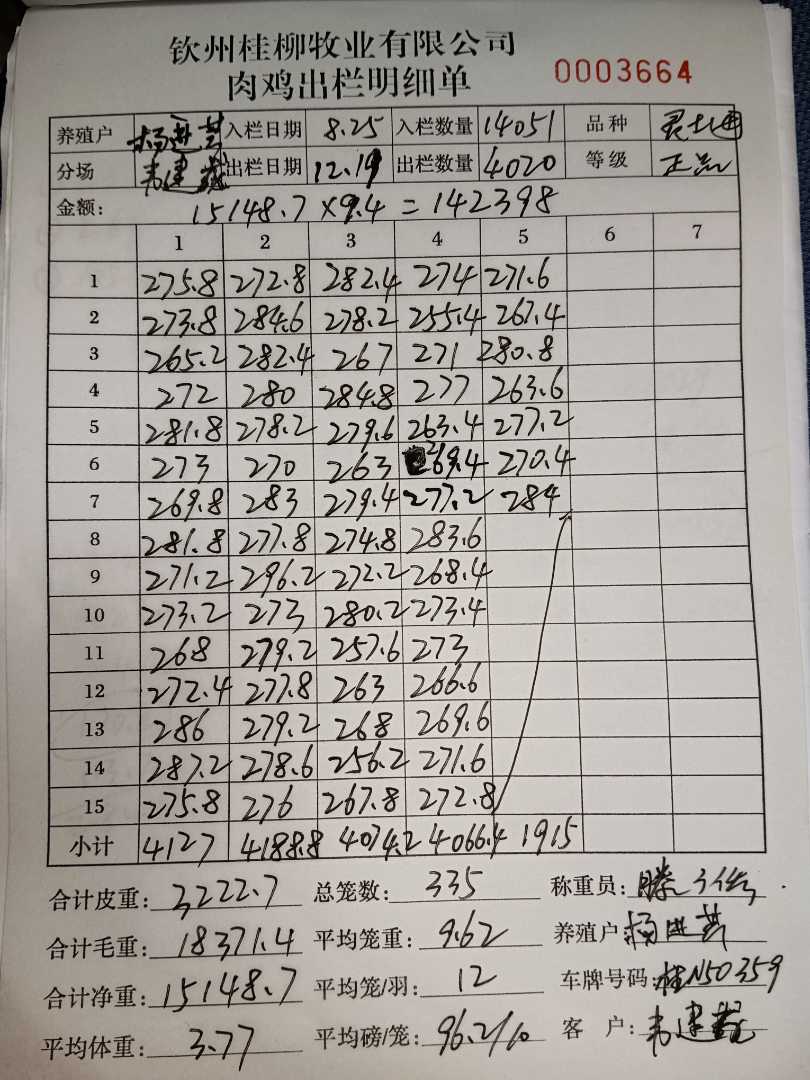 钦州桂柳牧业有限公司
肉鸡出栏明细单 0003664
养殖户 杨进芸 入栏日期 8.25 入栏数量 14051 品种
分场 韦建 出栏日期 12.19 出栏数量 4020 等级 正品
金额: 15148.7×9.4=142398
1 2 3 4 5 6 7
1 275.8 272.8 282.4 274 271.6
2 273.8 284.6 278.2 255.4 267.4
3 265.2 282.4 267 271 280.8
4 272 280 284.8 277 263.6
5 281.8 278.2 279.6 263.4 277.2
6 273 270 263 269.4 270.4
7 269.8 283 279.4 277.2 284
8 281.8 277.8 274.8 283.6
9 271.2 296.2 272.2 268.4
10 273.2 273 280.2 273.4
11 268 279.2 257.6 273
12 272.4 277.8 263 266.6
13 286 279.2 268 269.6
14 287.2 278.6 256.2 271.6
15 275.8 276 267.8 272.8
小计 4127 4188.8 4074.2 4066.4 1915
合计皮重: 3222.7 总笼数: 335 称重员: 滕
合计毛重: 18371.4 平均笼重: 9.62 养殖户: 杨进芸
合计净重: 15148.7 平均笼/羽: 12 车牌号码: 桂N50359
平均体重: 3.77 平均磅/笼: 96.2/10 客 户: 韦建